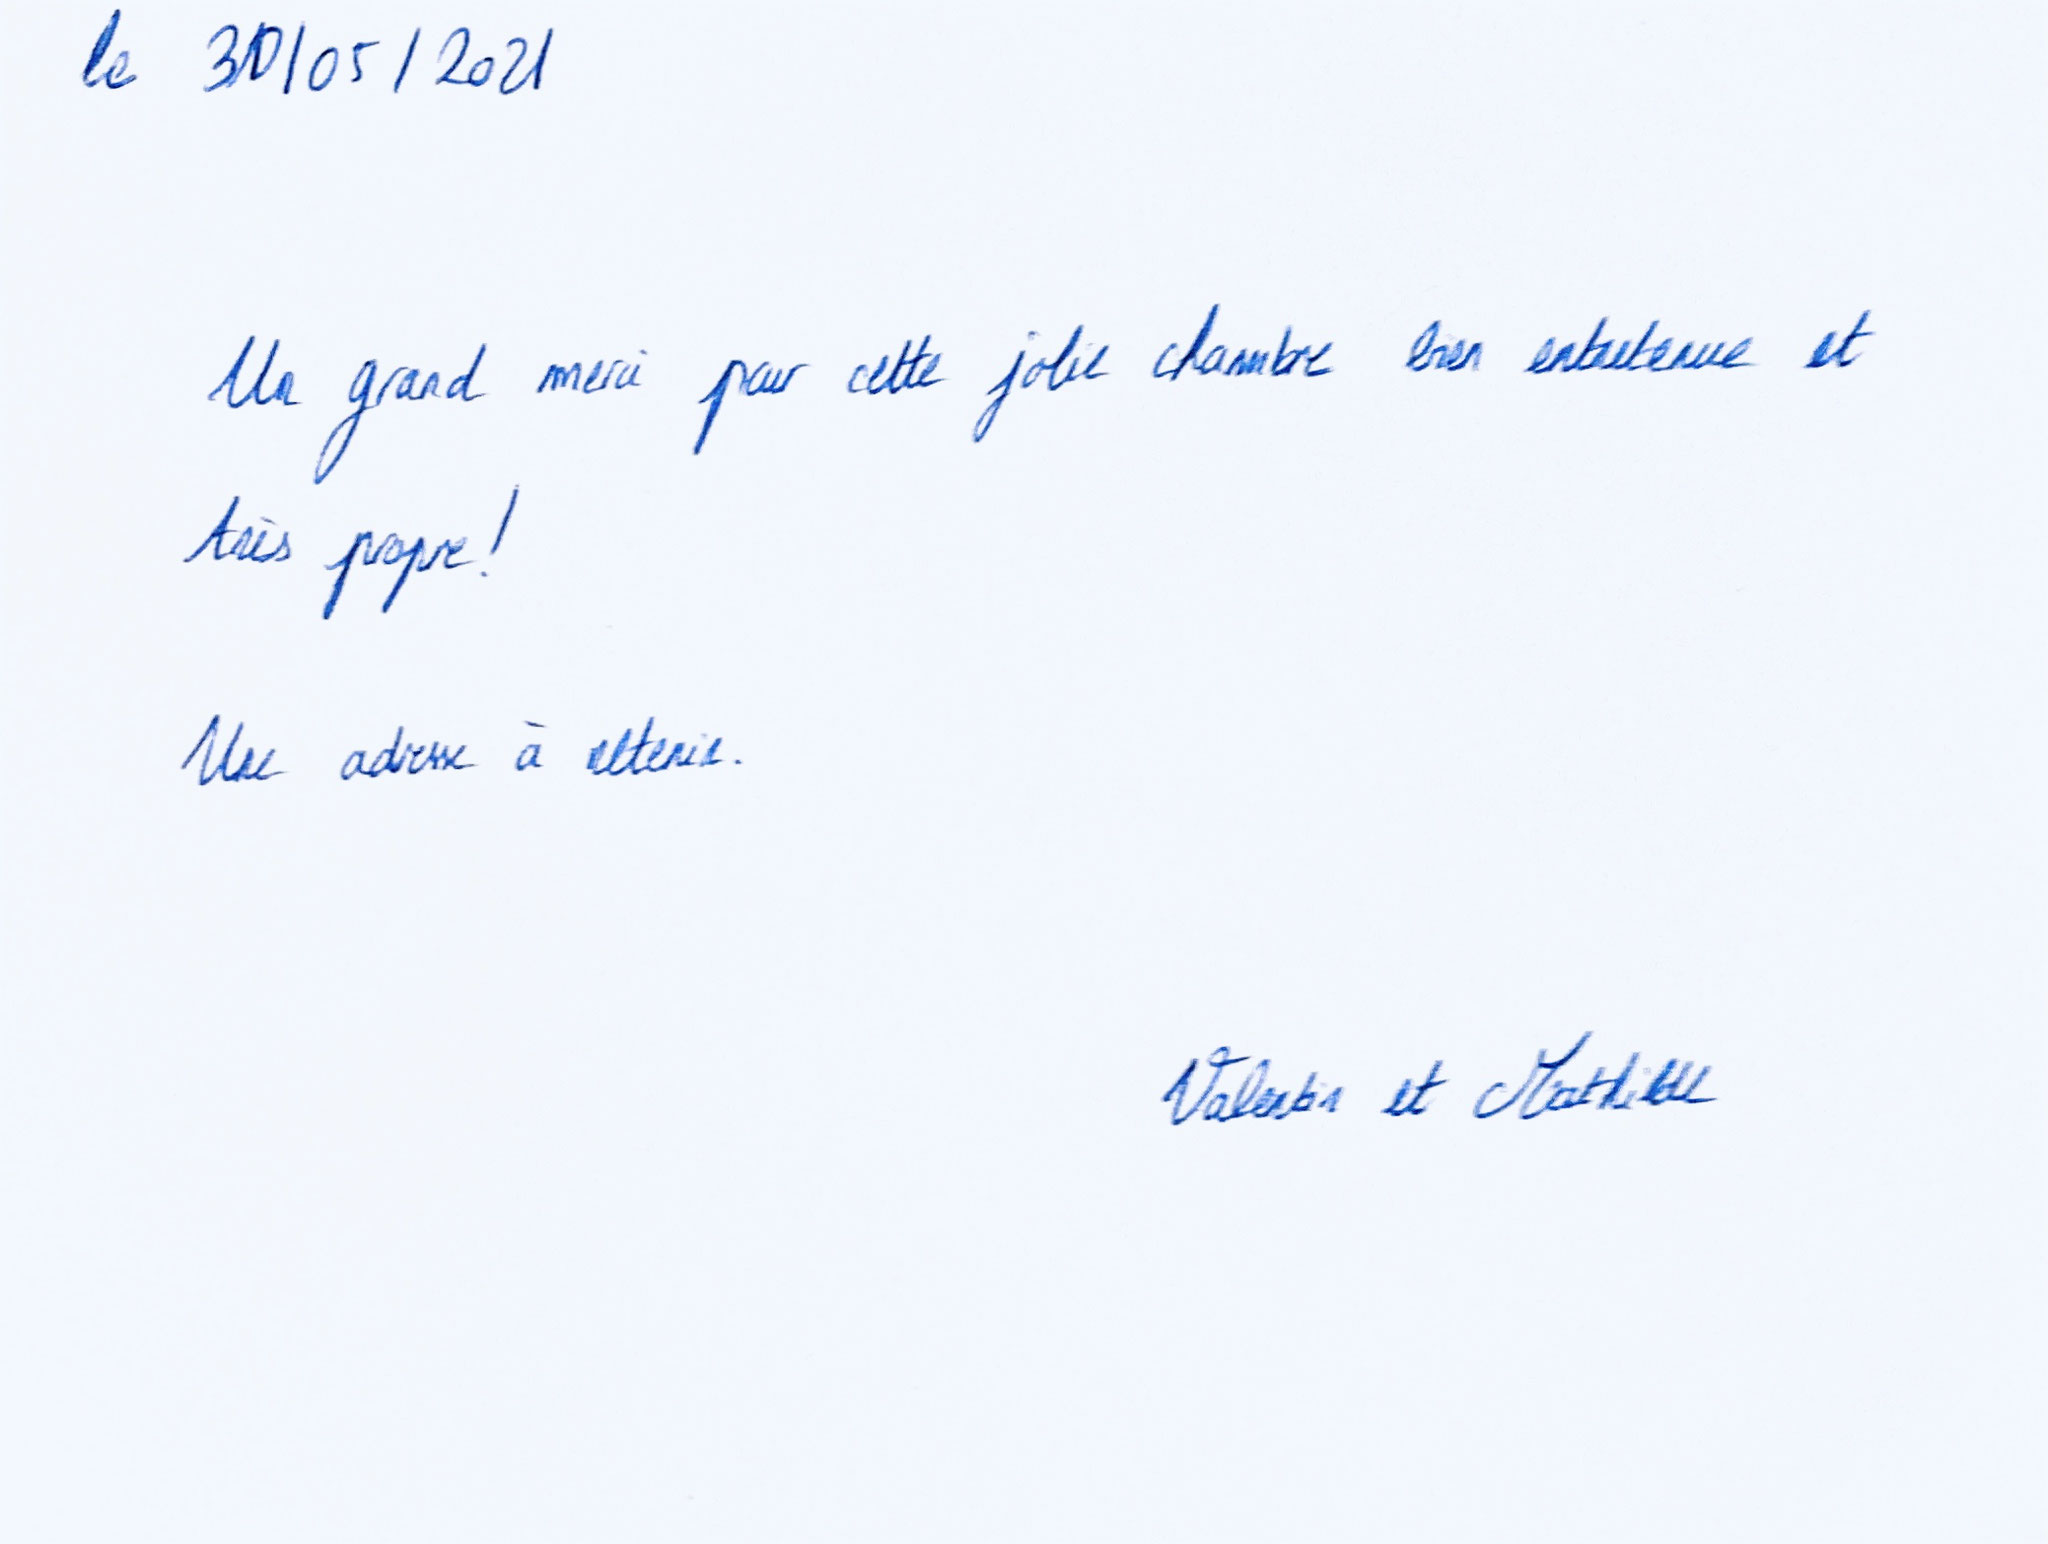 le 30/05/2021
Un grand merci pour cette jolie chambre bien entretenue et
très propre!
Une adresse à retenir.
Valentin et Mathilde